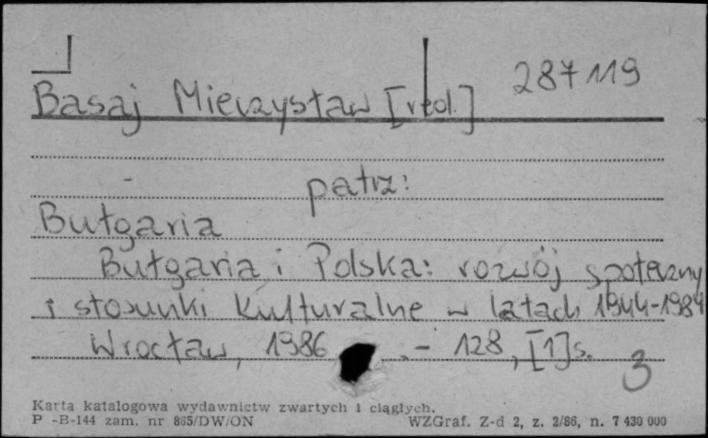 287119
Basaj Mieczysław [red.]
patrz:
Bułgaria
Bułgaria i Polska: rozwój społeczny
i stosunki kulturalne w latach 1944-1984
Wrocław, 1986 .- 128, [1] s.
3
Karta katalogowa wydawnictw zwartych i ciągłych.
P -B-144 zam. nr 865/DW/ON WZGraf. Z-d 2, z. 2/86, n. 7 430 000